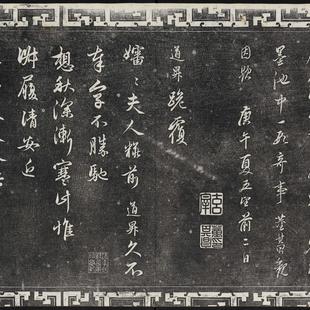 墨池中一段奇事 董其昌觀
因題 庚午夏五望前二日
道昇跪覆
嬸〻夫人粧前 道昇久不
奉字不勝馳
想秋深漸寒計惟
淑履請安近